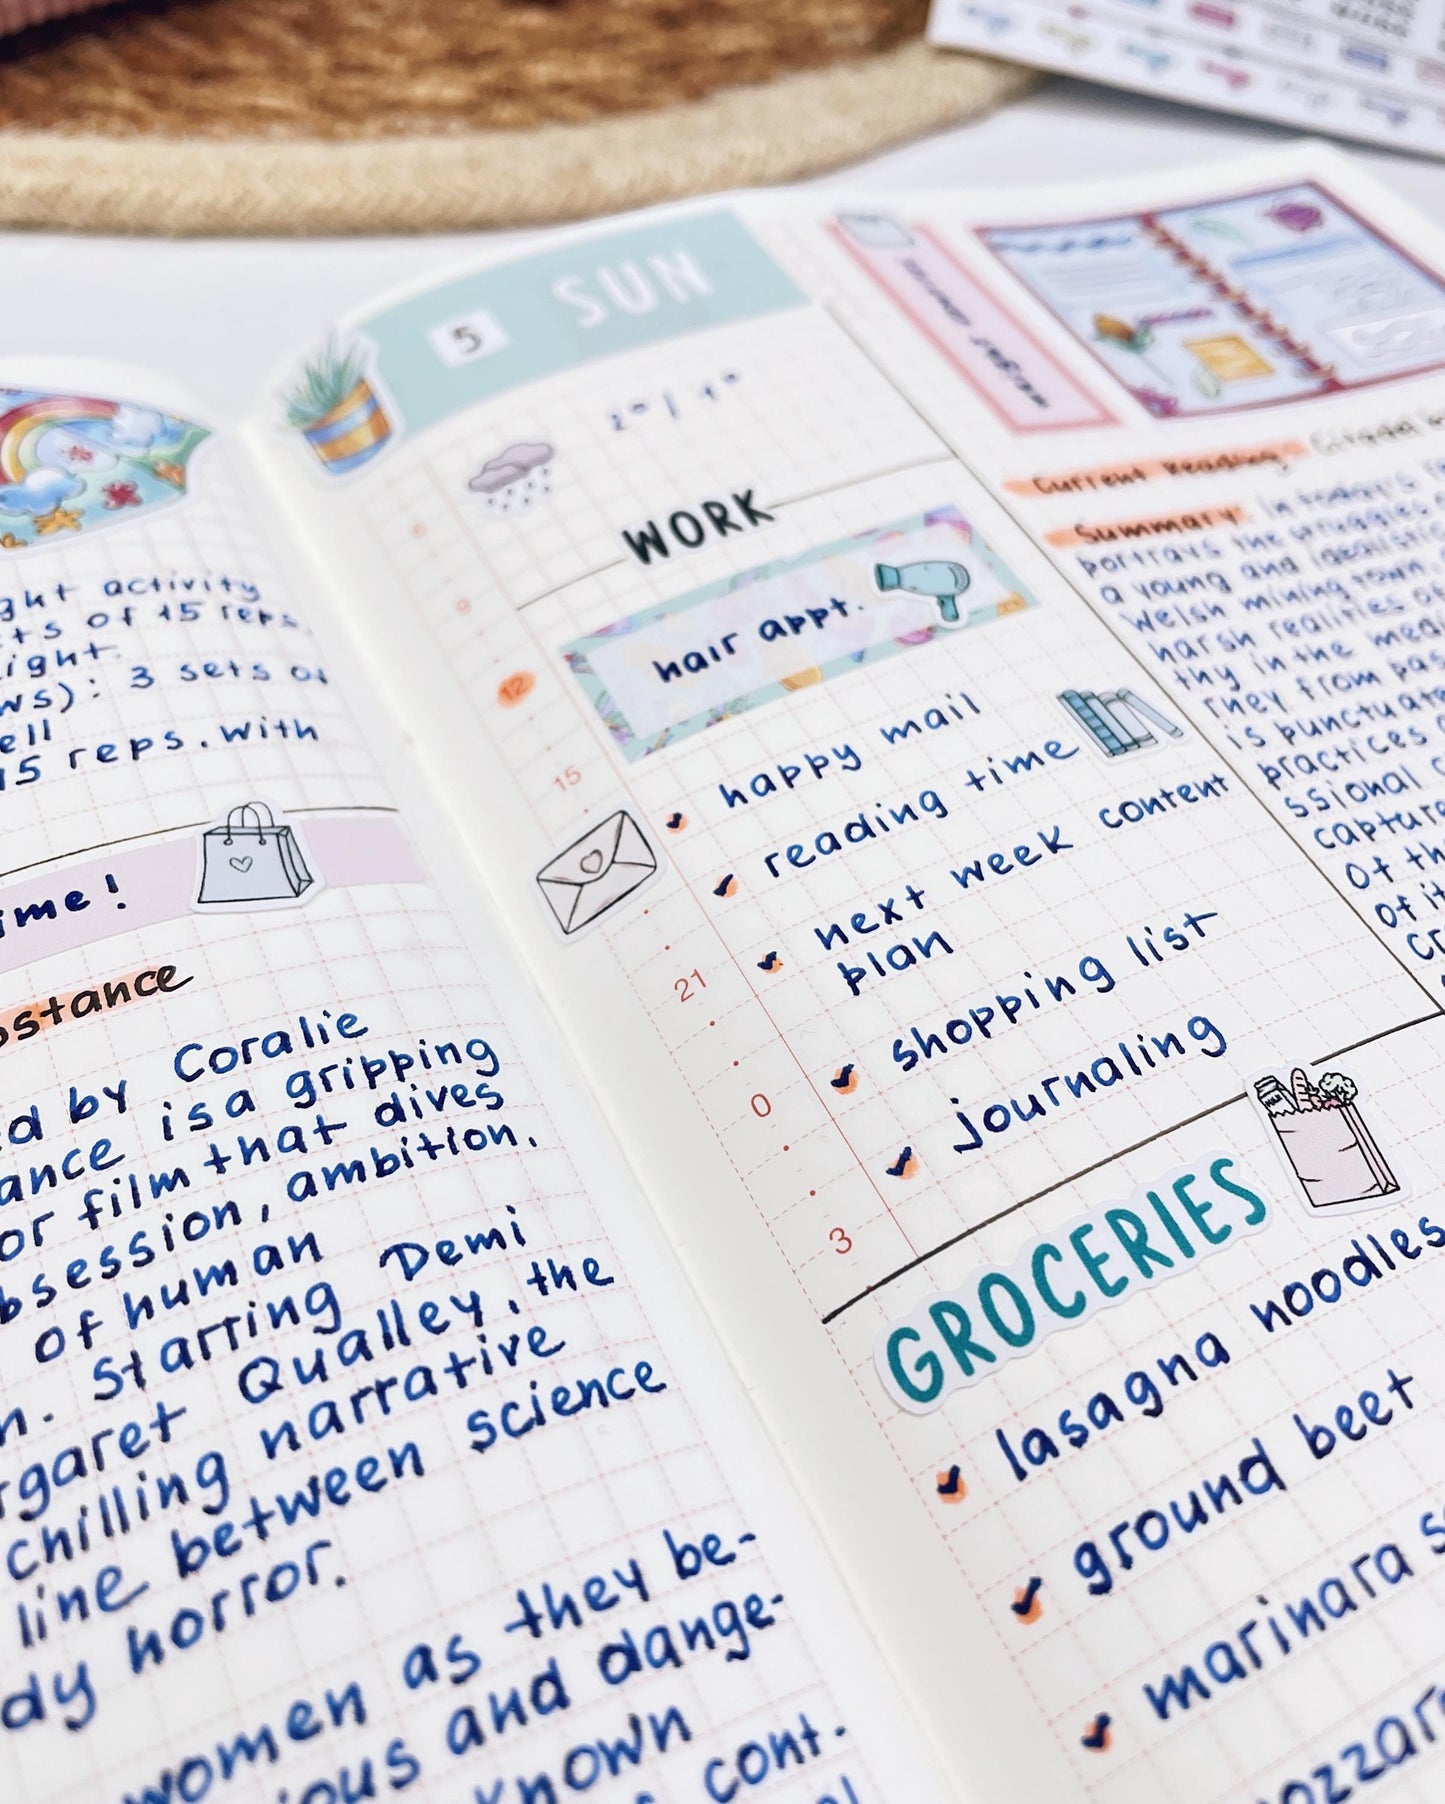 ght activity
ts of 15 reps.
ight.
ws): 3 sets of
ell
15 reps. with
ime!
bstance
ed by Coralie
ance is a gripping
or film that dives
bsession, ambition,
of human
n. Starring Demi
rgaret Qualley, the
chilling narrative
line between science
dy horror.
women as they be-
ious and dange-
known
cont.
5 SUN
WORK
hair appt.
12
15
21
0
3
happy mail
reading time
next week content
plan
shopping list
journaling
GROCERIES
lasagna noodles
ground beet
marinara s
ozzar
Current Reading: Citadel
Summary: In today's
portrays the struggles
a young and idealistic
Welsh mining town.
harsh realities
thy in the med
rney from pas
is punctuate
practices
ssional
capture
of th
of it